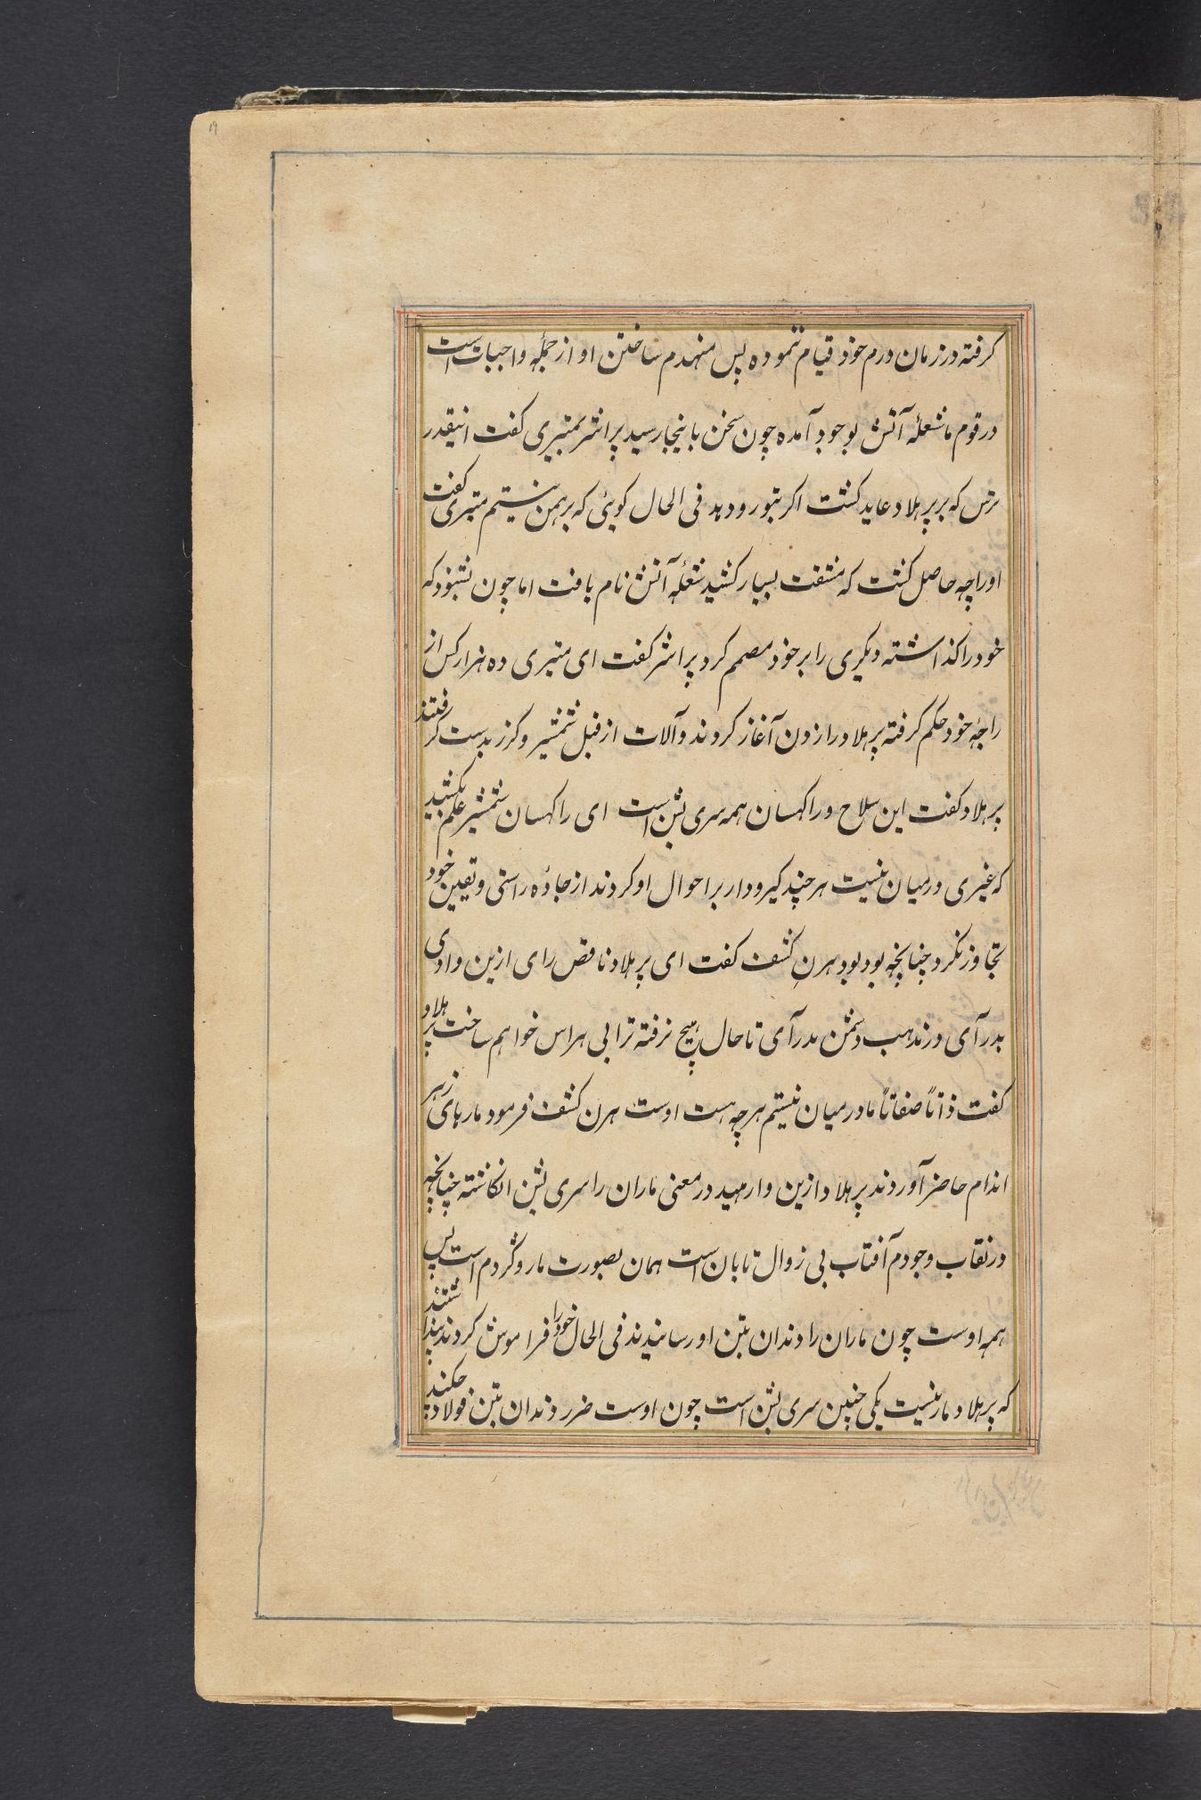 کرفته در زمان درم خود قیام نموده پس منهدم ساختن او از جمله واجبات است
در قوم ما شعلهٔ آتش بوجود آمده چون سخن باینجا رسید پراشر بمتیری کفت اینقدر
ترس که بر پرهلاد عاید کشت اکر بتو رو دهد فی الحال کوئی که برهمن نیستم متیری کفت
او را چه حاصل کشت که مشقت بسیار کشید شعلهٔ آتش نام یافت اما چون نشنود که
خود را کذاشته دیکری را بر خود مصمم کرد پراشر کفت ای متیری ده هزار کس از
راجهٔ خود حکم کرفته پرهلاد را زدن آغاز کردند و آلات از قبل شمشیر و کرز بدست کرفتند
پرهلاد کفت این سلاح و راکهسان همه سری بشن است ای راکهسان شمشیر علم بکشید
که غیری درمیان نیست هر چند کیر و دار بر احوال او کردند از جادهٔ راستی و یقین خود
تجاوز نکرد چنانچه بود بود هرن کشف کفت ای پرهلاد ناقص رای ازین وادی
بدر آی در مذهب دشمن مدرآی تا حال هیچ نرفته ترا بی هراس خواهم ساخت پرهلاد
کفت ذاتاً صفاتاً ما درمیان نیستم هر چه هست اوست هرن کشف فرمود مارهای زهر
اندام حاضر آوردند پرهلاد ازین وارهید در معنی ماران را سری بشن انکاشته چنانچه
در نقاب وجودم آفتاب بی زوال تابان است همان بصورت مار و کژدم است پس
همه اوست چون ماران را دندان بتن او رسانیدند فی الحال خود را فراموش کردند پنداشتند
که پرهلاد مار نیست یکی چنین سری بشن است چون اوست ضرر دندان بتن فولاد چکند